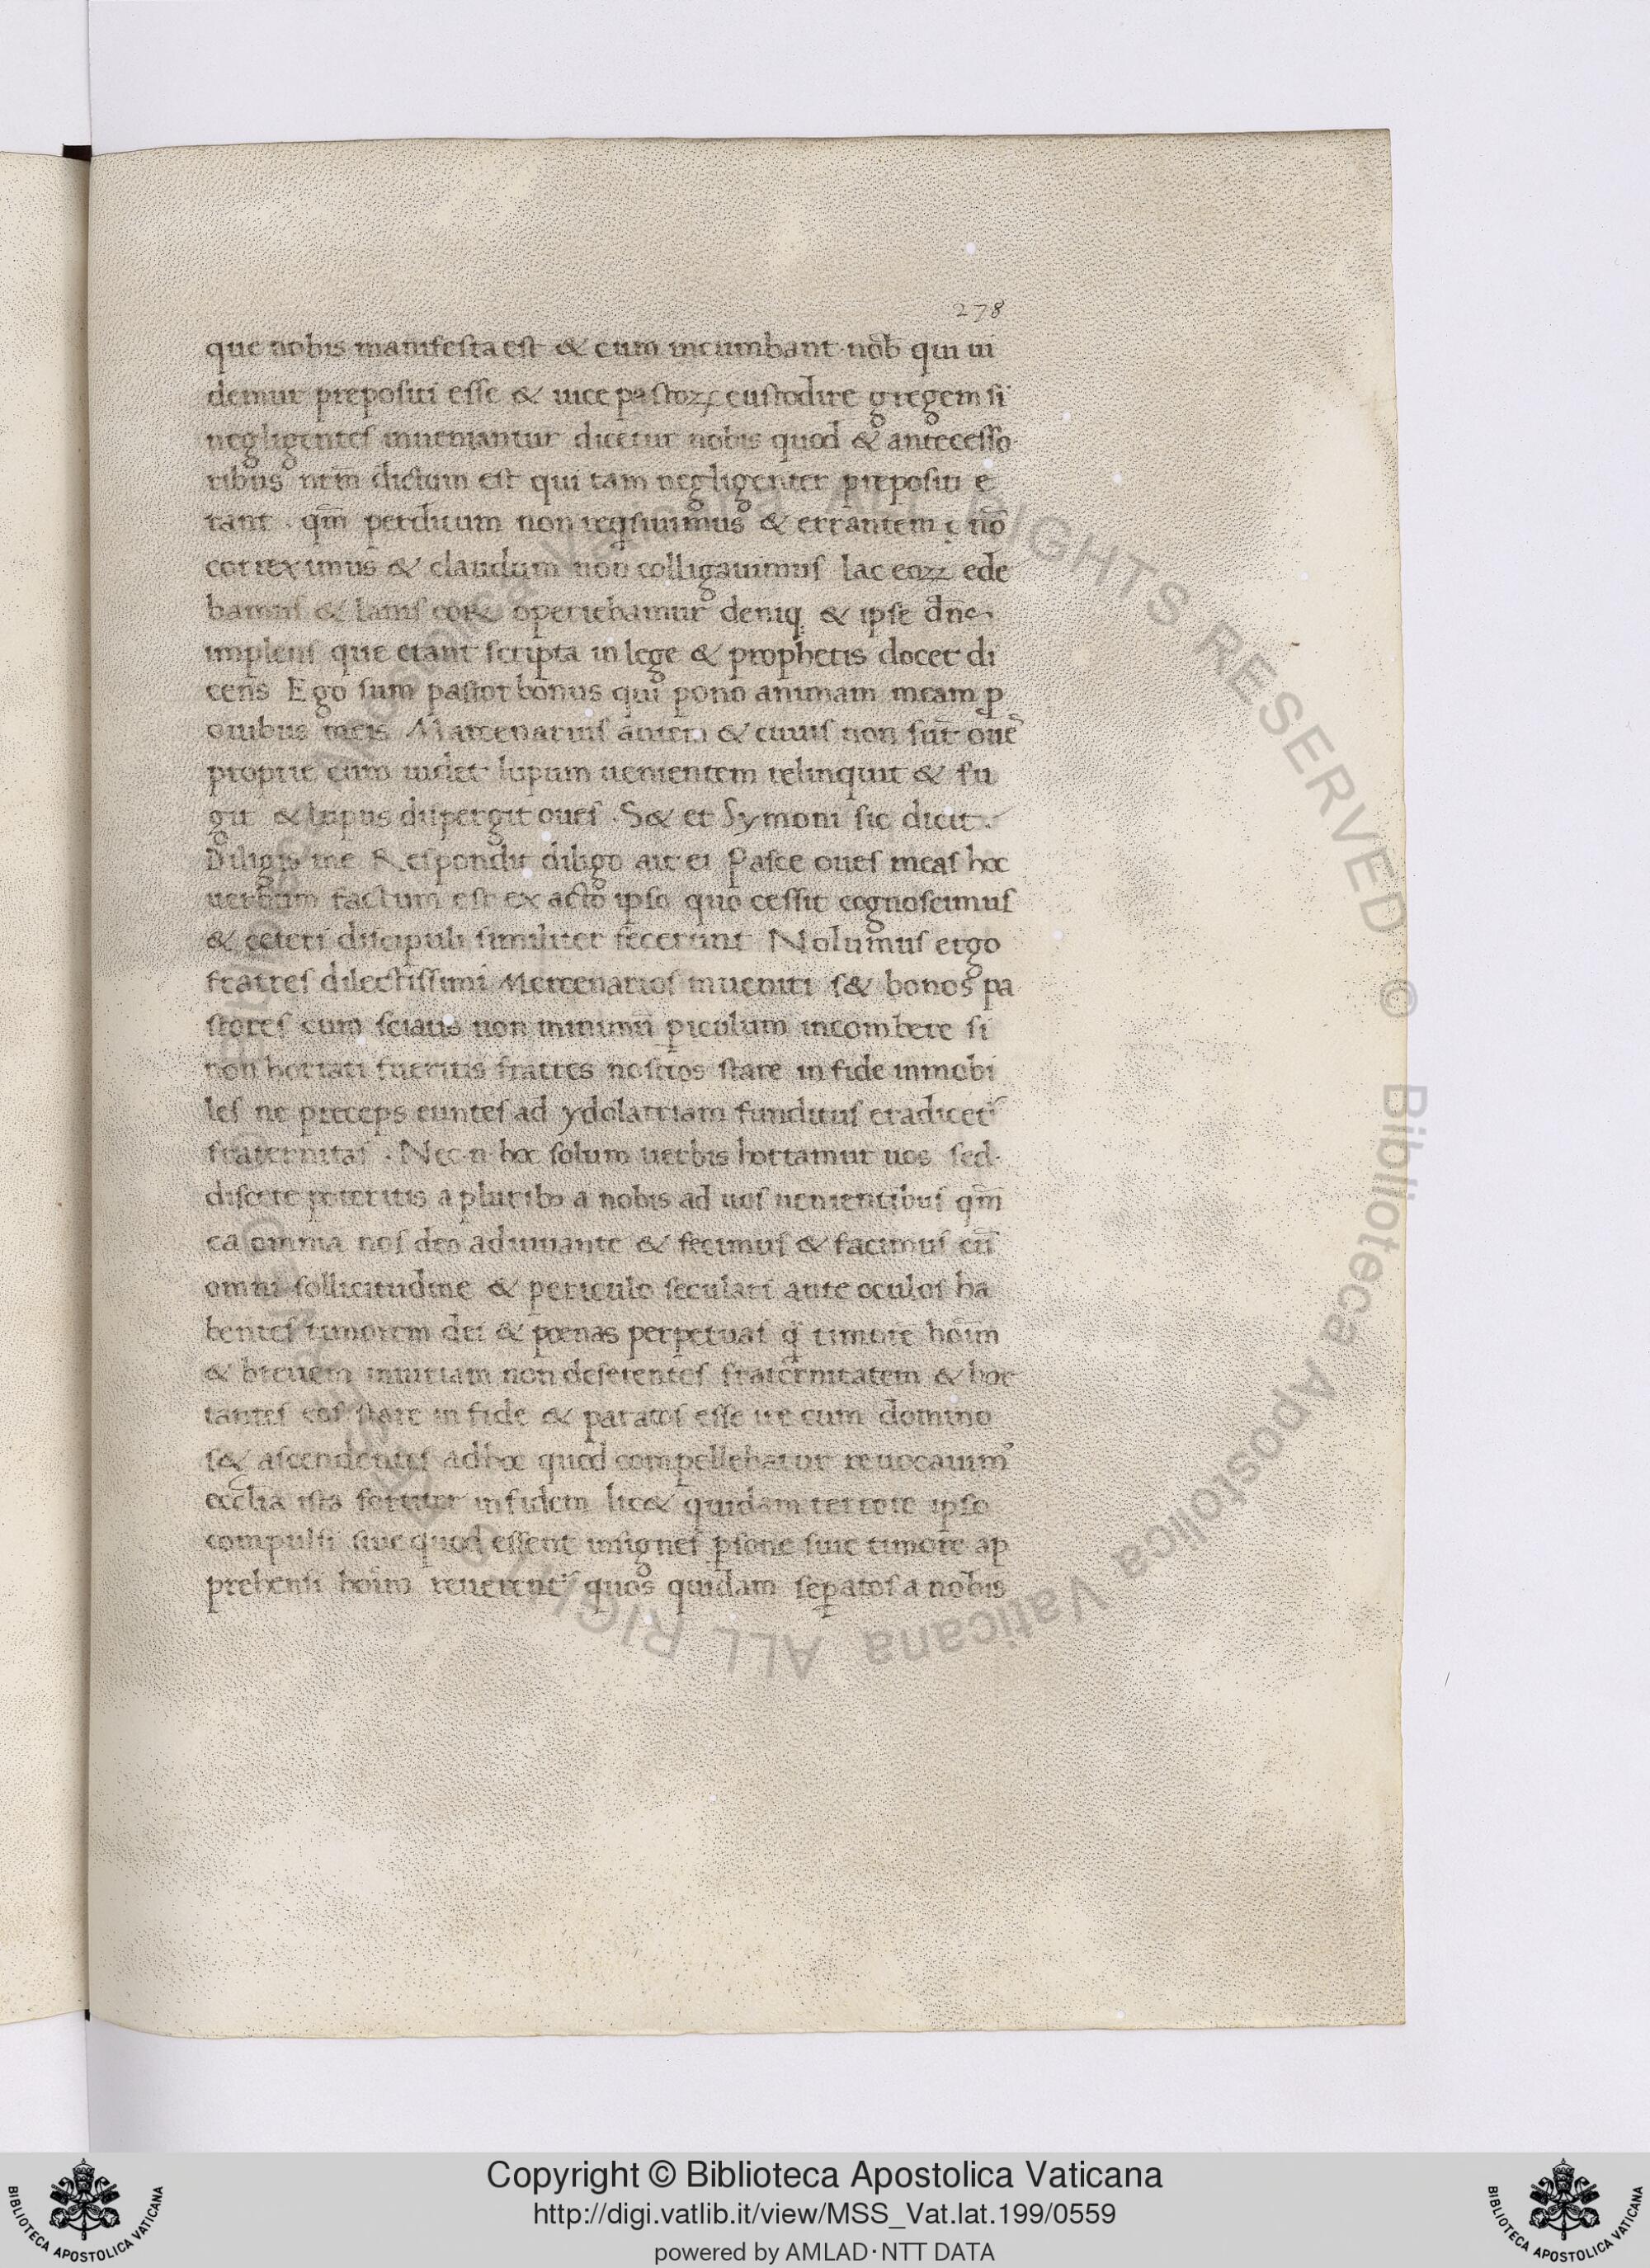 278
que nobis manifesta est & cum incumbant nob̄ qui ui
demur prepositi esse & uice pastoꝝ custodire gregem si
negligentes inueniantur dicetur nobis quod & antecesso
ribus nr̄m dictum est qui tam negligenter prepositi e
rant · qm̄ perditum non reqsiuimus & errantem nō
correximus & claudum non colligauimus lac eoꝝ ede
bamus & lanis eoꝝ operiebamur deniq & ipse dn̄s
implens que erant scripta in lege & prophetis docet di
cens Ego sum pastor bonus qui pono animam meam ꝓ
ouibus meis Marcenarius autem & cuius non sūt oues
proprie cum uidet lupum uenientem relinquit & fu
git & lupus dispergit oues · S& et Symoni sic dicit
Diligis me Respondit diligo ait ei Pasce oues meas hoc
uerbum factum est ex acto ipso quo cessit cognoscimus
& ceteri discipuli similiter fecerunt Nolumus ergo
fratres dilectissimi Mercenarios inueniri s& bonos pa
stores cum sciatis non minimū ꝑiculum incombere si
non hortati fueritis fratres nostros stare in fide inmobi
les ne preceps euntes ad ydolatriam funditus eradicet᷑
fraternitas · Nec n hoc solum uerbis hortamur uos sed
discere poteritis a pluribꝫ a nobis ad uos uenientibus qm̄
ea omnia nos deo adiuuante & fecimus & facimus cū
omni sollicitudine & periculo seculari ante oculos ha
bentes timorem dei & pœnas perpetuas q̄ timore hoīm
& breuem iniuriam non deserentes fraternitatem & hor
tantes eos stare in fide & paratos esse ire cum domino
s& ascendentes ad hoc quod compellebatur reuocauimꝰ
ecclia ista fortiter in fidem lic& quidam terrore ipso
compulsi siue quod essent insignes ꝑsone siue timore ap
prehensi hoīm quos quidam seꝑatos a nobis